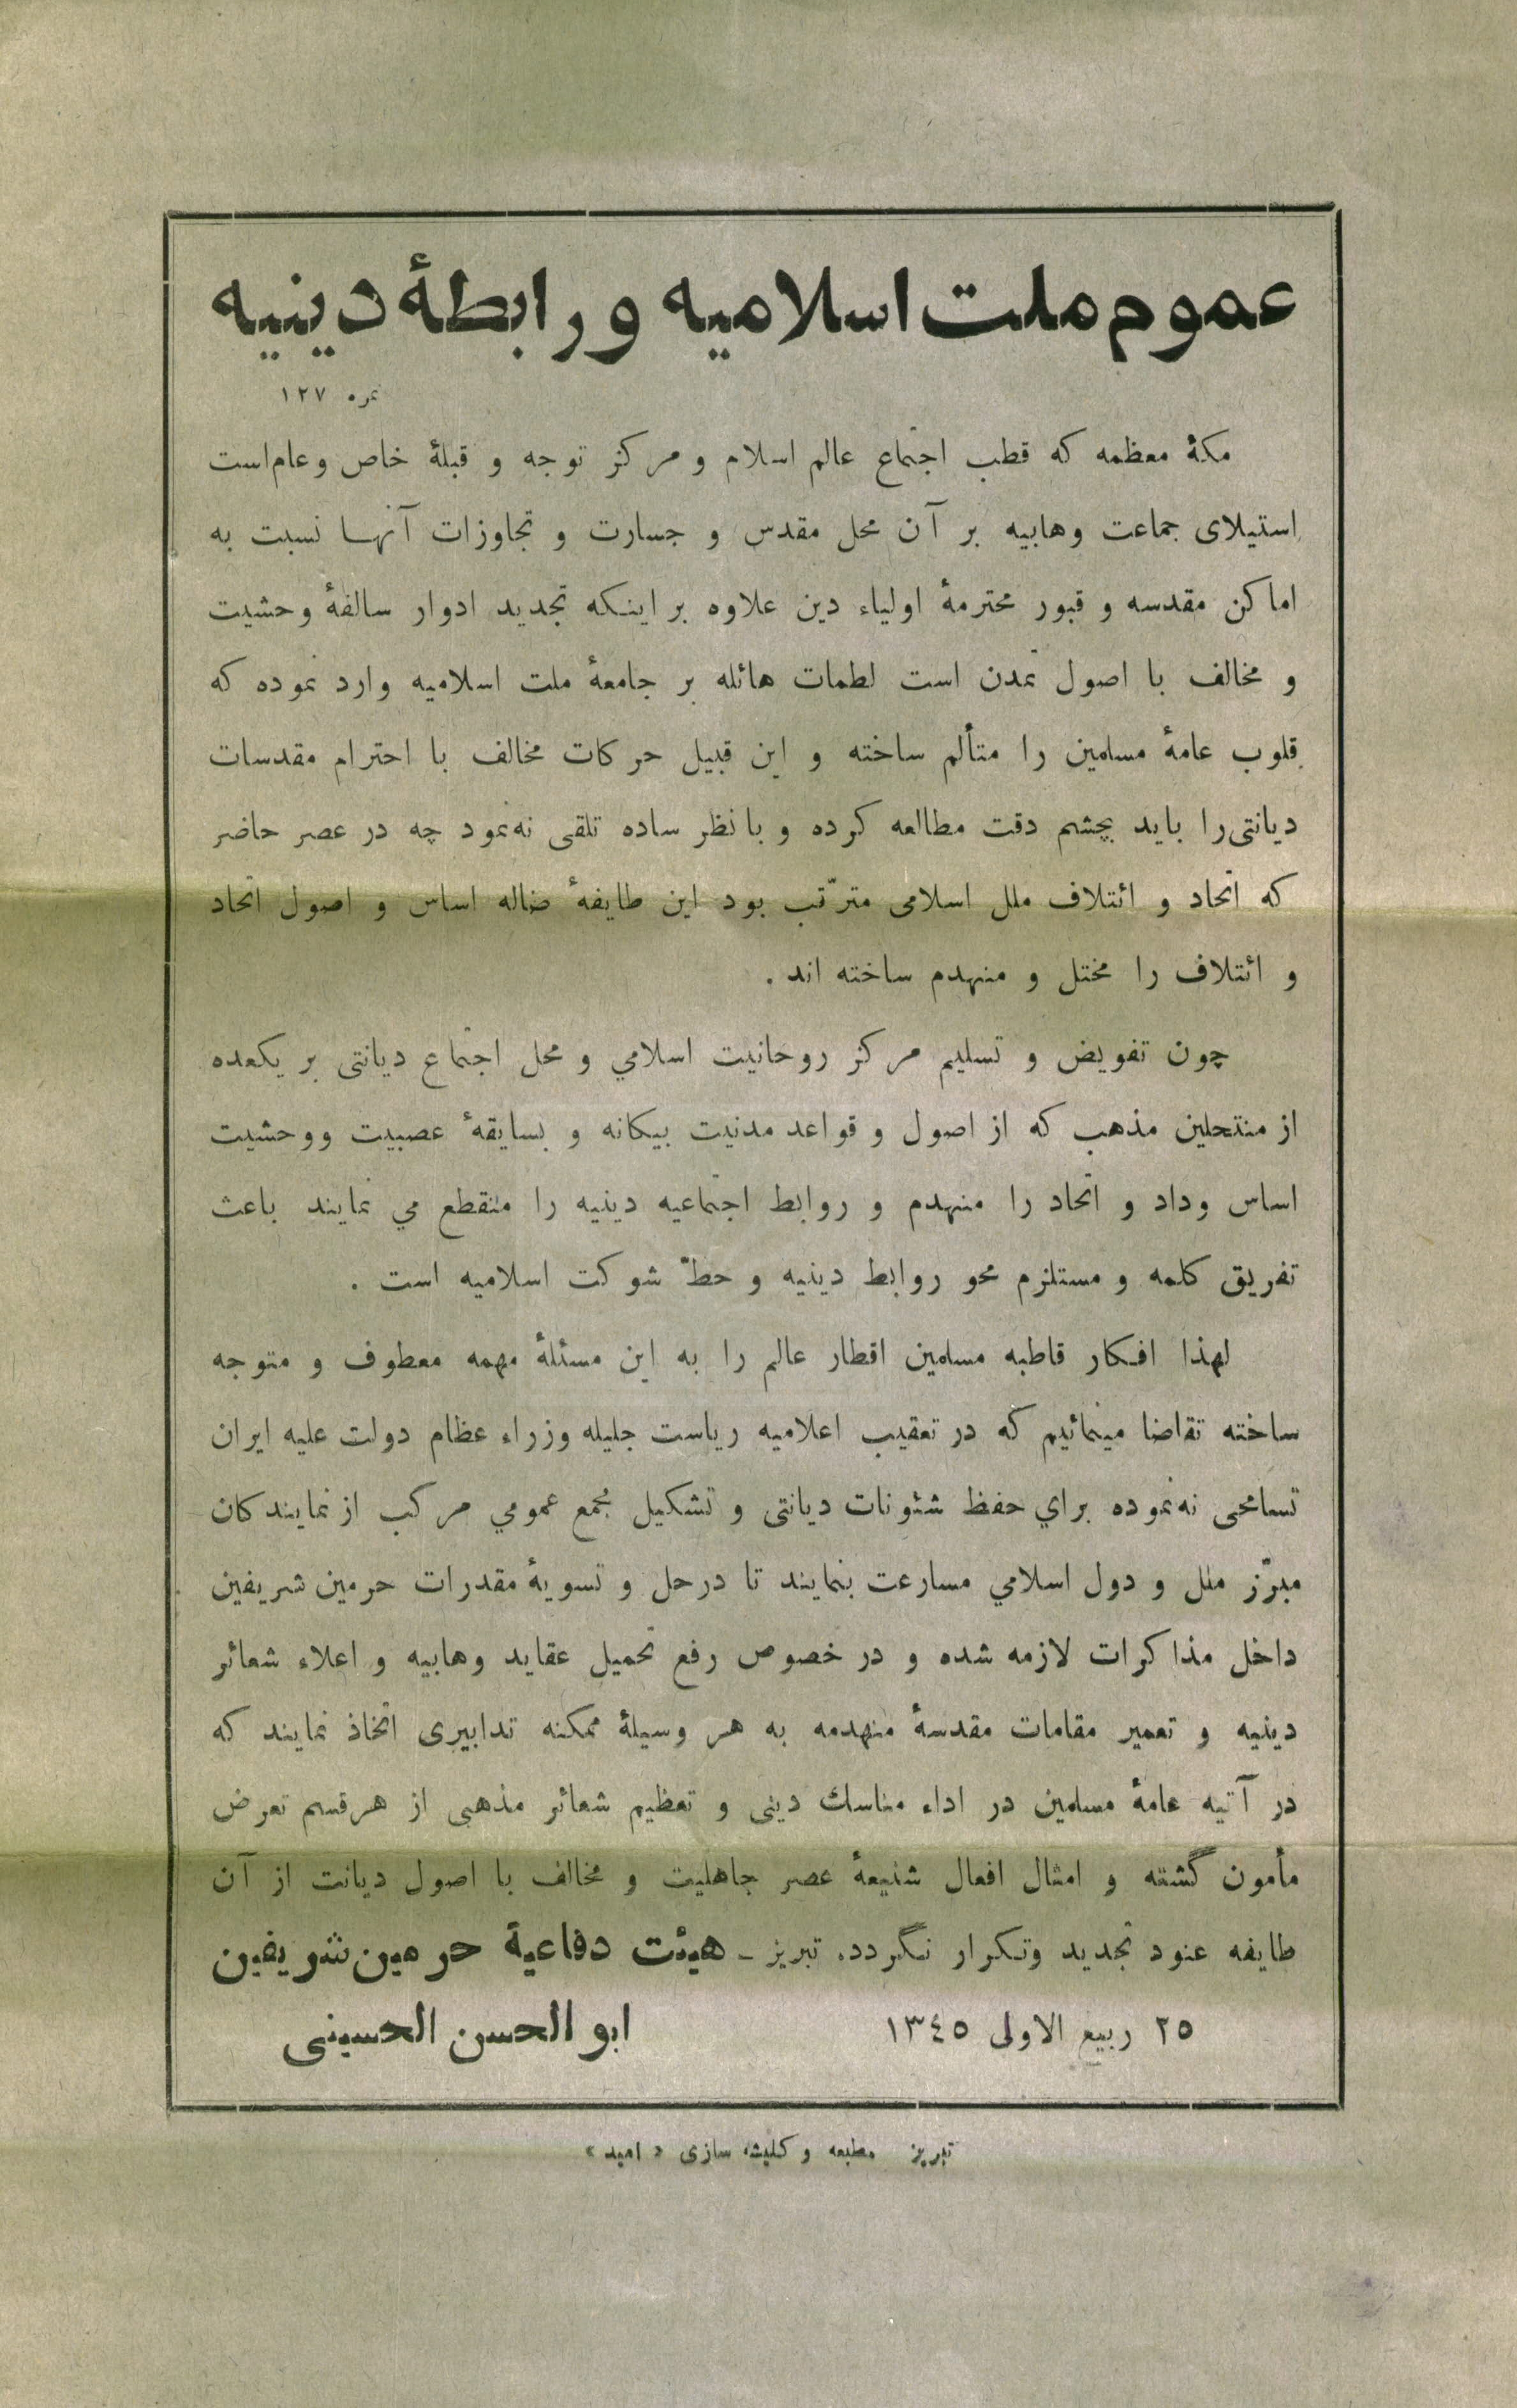 عموم ملت اسلامیه و رابطهٔ دینیه
نمره ۱۲۷
مکهٔ معظمه که قطب اجتماع عالم اسلام و مرکز توجه و قبلهٔ خاص و عام است
استیلای جماعت وهابیه بر آن محل مقدس و جسارت و تجاوزات آنهـا نسبت به
اماکن مقدسه و قبور محترمهٔ اولیاء دین علاوه بر اینکه تجدید ادوار سالفهٔ وحشیت
و مخالف با اصول تمدن است لطمات هائله بر جامعهٔ ملت اسلامیه وارد نموده که
قلوب عامهٔ مسلمین را متألم ساخته و این قبیل حرکات مخالف با احترام مقدسات
دیانتی را باید بچشم دقت مطالعه کرده و با نظر ساده تلقی نه‌نمود چه در عصر حاضر
که اتحاد و ائتلاف ملل اسلامی مترتّب بود این طایفهٔ ضاله اساس و اصول اتحاد
و ائتلاف را مختل و منهدم ساخته اند .
چون تفویض و تسلیم مرکز روحانیت اسلامي و محل اجتماع دیانتی بر یکعده
از منتحلین مذهب که از اصول و قواعد مدنیت بیکانه و بسایقهٔ عصبیت ووحشیت
اساس وداد و اتحاد را منهدم و روابط اجتماعیه دینیه را منقطع مي نمایند باعث
تفریق کلمه و مستلزم محو روابط دینیه و حطّ شوکت اسلامیه است .
لهذا افـکار قاطبه مسلمین اقطار عالم را به این مسئلهٔ مهمه معطوف و متوجه
ساخته تقاضا مینمائیم که در تعقیب اعلامیه ریاست جلیله وزراء عظام دولت علیه ایران
تسامحی نه‌نموده براي حفظ شئونات دیانتی و تشکیل مجمع عمومي مرکب از نمایندکان
مبرّز ملل و دول اسلامي مسارعت بنمایند تا درحل و تسویهٔ مقدرات حرمین شریفین
داخل مذاکرات لازمه شده و در خصوص رفع تحمیل عقاید وهابیه و اعلاء شعائر
دینیه و تعمیر مقامات مقدسهٔ منهدمه به هر وسیلهٔ ممکنه تدابیری اتخاذ نمایند که
در آتیه عامهٔ مسلمین در اداء مناسك دینی و تعظیم شعائر مذهبی از هرقسم تعرض
مأمون گشته و امثال افعال شنیعهٔ عصر جاهلیت و مخالف با اصول دیانت از آن
طایفه عنود تجدید وتکرار نگردد. تبریز ـ هیئت دفاعیهٔ حرمین شریفین
۲۵ ربیع الاولی ۱۳٤۵ ابو الحسن الحسینی
تبریز مطبعه و کلیشه سازی « امید »